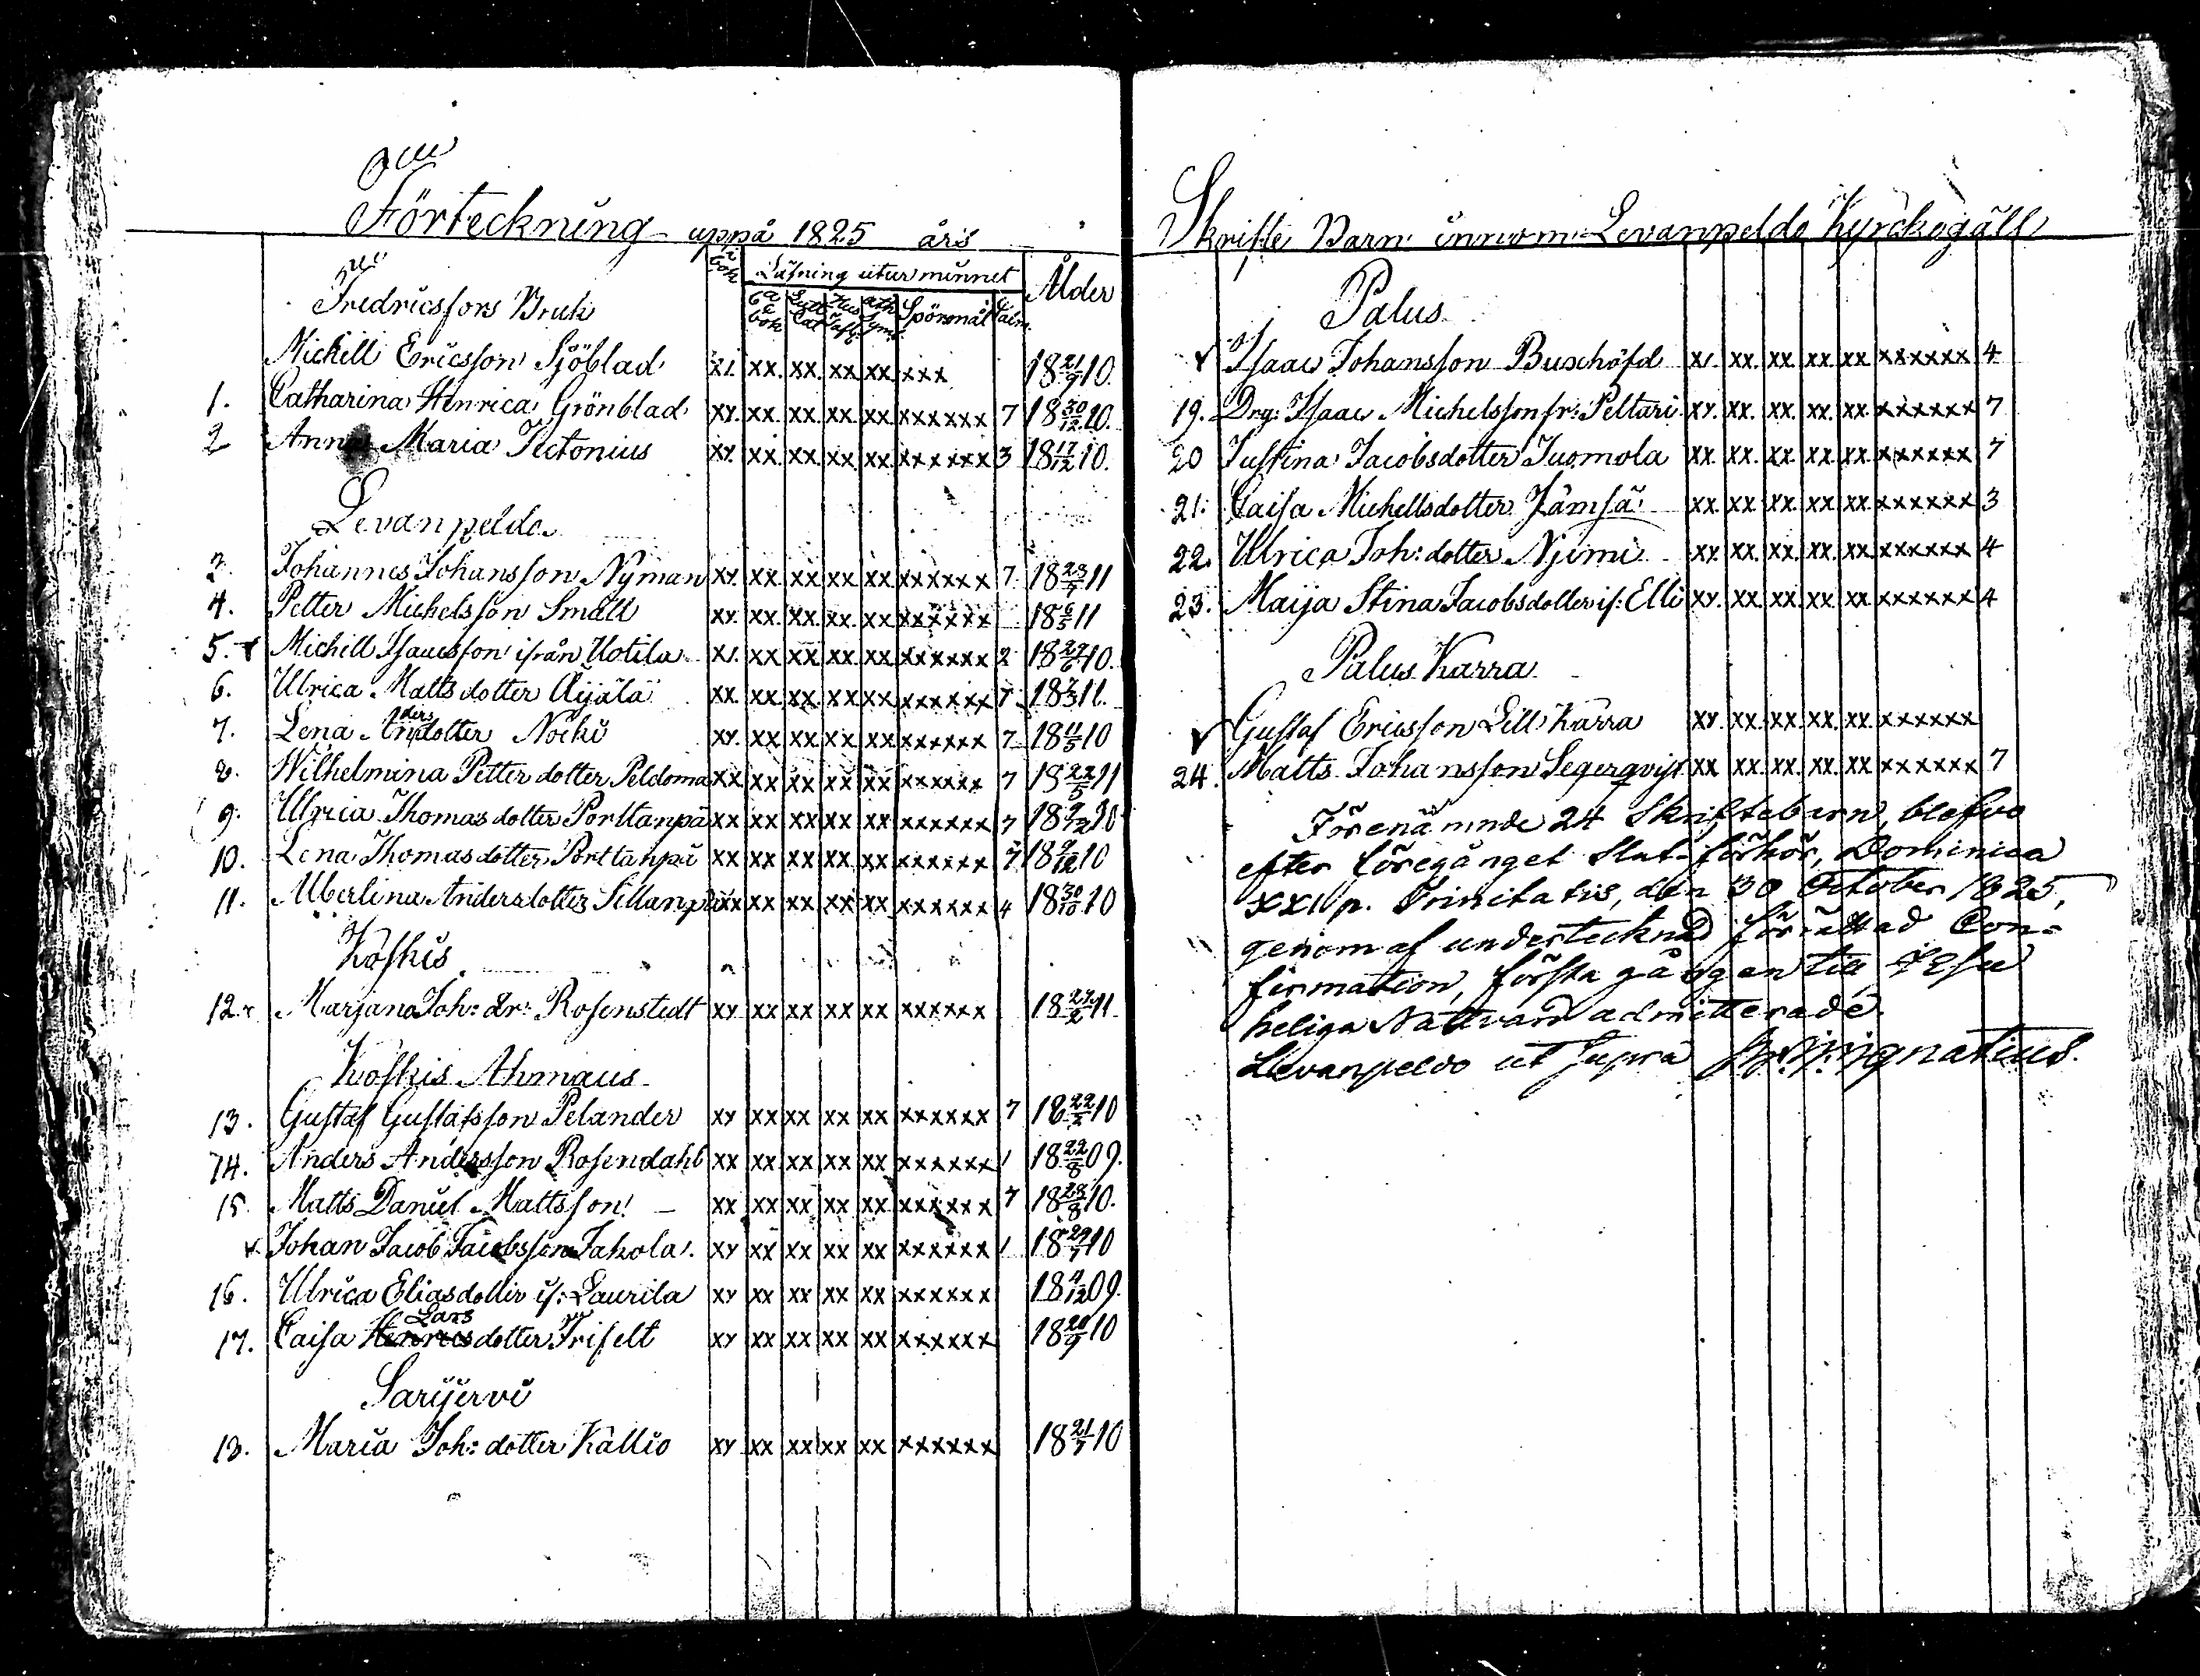 Förteckning uppå 1825 års
i bok Läsning utur minnet Ålder
Fredricsfors Bruk a b c bok Lutt Cat Hus tafl. ath Sym. Spörsmål Psalm.
Michell Ericsson Sjöblad xx. xx. xx. xx. xxx 18 21/9 10.
1. Catharina Henrica Grönblad xx. xx. xx. xx. xx. xxxxxx 7 18 30/12 10.
2 Anna Maria Tectonius xx. xx. xx. xx xx. xxxxxx 3 18 17/12 10.
Levanpeldo
3. Johannes Johansson Nyman xx. xx. xx xx xx xxxxxx 7 18 23/7 11
4. Petter Michelsson Småll xx. xx. xx. xx. xx xxxxxx 18 6/5 11
5. Michell Isaacsson ifrån Uotila xx xx. xx. xx xxxxxx 2 18 29/6 10.
6. Ulrica Mattsdotter Äijälä xx. xx. xx. xx xx xxxxxx 7 18 7/3 11.
7. Lena Andersdotter Nöcki xx. xx xx. xx xx xxxxxx 7 18 11/5 10
8. Wilhelmina Petter dotter Peldoma xx xx xx xx xx xxxxxx 7 18 22/5 11
9. Ulrica Thomas dotter Porttanpä xx xx xx xx xx xxxxxx 7 18 9/12 10
10. Lena Thomas dotter Porttanpä xx xx xx xx xx xxxxxx 7 18 9/12 10
11. Albertina Andersdotter Sillanpä xx xx xx xx xx xxxxxx 4 18 30/10 10
Koskis
12. Marjana Joh: dr: Rosenstedt xx xx xx xx xx xxxxxx 18 27/2 11
Koskis Ahmaus
13. Gustaf Gustafsson Pelander xx xx xx xx xx xxxxxx 7 18 22/2 10
14. Anders Andersson Rosendahl xx xx xx xx xx xxxxxx 1 18 22/8 09.
15. Matts Daniel Mattsson xx xx xx xx xx xxxxxx 7 18 28/8 10.
Johan Jacob Jacobsson Jakola. xx xx xx xx xx xxxxxx 1 18 29/7 10
16. Ulrica Eliasdotter if: Laurila xx xx xx xx xx xxxxxx 18 11/12 09.
Lars
17. Caisa Henrics dotter Friselt xx xx xx xx xx xxxxxx 18 20/9 10
Sarijervi
18. Maria Joh: dotter Kallio xx xx xx xx xx xxxxxx 18 21/7 10
Skrifte Barn innom Levanpeldo Kyrckogäll
Palus
Isaac Johansson Buxhöfd xx. xx. xx. xx. xx xxxxxx 4
19. Drg: Isaac Michelsson fr: Peltari xx. xx. xx. xx. xx. xxxxxx 7
20 Justina Jacobsdotter Tuomola xx. xx. xx. xx. xx. xxxxxx 7
21. Caisa Michellsdotter Jämsä xx. xx. xx. xx. xx. xxxxxx 3
22. Ulrica Joh: dotter Njimi xx. xx. xx. xx. xx xxxxxx 4
23. Maija Stina Jacobsdotter if: Elli xx. xx. xx. xx. xx xxxxxx 4
Palus Karra
Gustaf Ericsson Lill Karra xx. xx. xx. xx. xx. xxxxxx
24. Matts Johansson Segerqvist xx xx. xx. xx. xx xxxxxx 7
Förenämnde 24 Skriftebarn, blefvo
efter föregånget Slut-förhör, Dominica
XXII p. Trinitatis, den 30 October 1825,
genom af undertecknad förrättad Con-
firmation, första gången till JESu
heliga Nattvard admitterade.
Levanpeldo ut supra Ignatius.